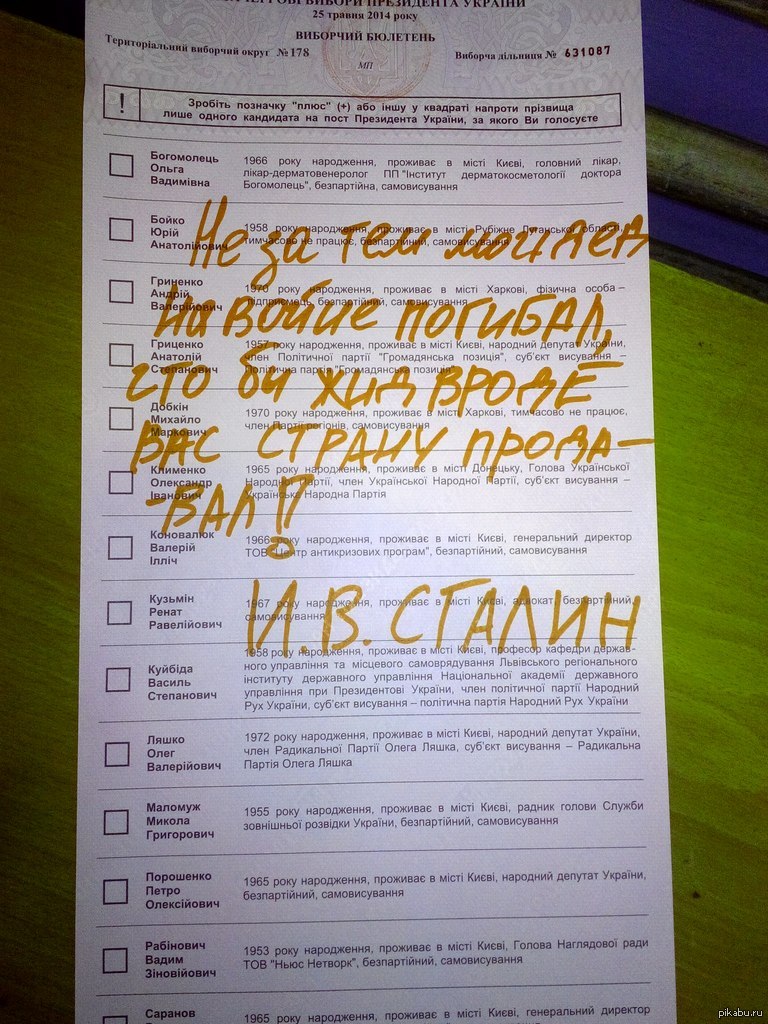 ПОЗАЧЕРГОВІ ВИБОРИ ПРЕЗИДЕНТА УКРАЇНИ
25 травня 2014 року
ВИБОРЧИЙ БЮЛЕТЕНЬ
Територіальний виборчий округ №178
Виборча дільниця № 631087
МП
! Зробіть позначку "плюс" (+) або іншу у квадраті напроти прізвища
лише одного кандидата на пост Президента України, за якого Ви голосуєте
Богомолець
Ольга
Вадимівна
1966 року народження, проживає в місті Києві, головний лікар,
лікар-дерматовенеролог ПП "Інститут дерматокосметології доктора
Богомолець", безпартійна, самовисування
Бойко
Юрій
Анатолійович
1958 року народження, проживає в місті Рубіжне Луганської області,
тимчасово не працює, безпартійний, самовисування
Не за тем мой дед
Гриненко
Андрій
Валерійович
1970 року народження, проживає в місті Харкові, фізична особа –
підприємець, безпартійний, самовисування
на войне погибал,
Гриценко
Анатолій
Степанович
1957 року народження, проживає в місті Києві, народний депутат України,
член Політичної партії "Громадянська позиція", суб'єкт висування –
Політична партія "Громадянська позиція"
что би жид вроде
Добкін
Михайло
Маркович
1970 року народження, проживає в місті Харкові, тимчасово не працює,
член Партії регіонів, самовисування
ВАС СТРАНУ ПРОДА-
Клименко
Олександр
Іванович
1965 року народження, проживає в місті Донецьку, Голова Української
Народної Партії, член Української Народної Партії, суб'єкт висування –
Українська Народна Партія
-ВАЛ!
Коновалюк
Валерій
Ілліч
1966 року народження, проживає в місті Києві, генеральний директор
ТОВ "Центр антикризових програм", безпартійний, самовисування
Кузьмін
Ренат
Равелійович
1967 року народження, проживає в місті Києві, адвокат, безпартійний,
самовисування
И.В. СТАЛИН
Куйбіда
Василь
Степанович
1958 року народження, проживає в місті Києві, професор кафедри держав-
ного управління та місцевого самоврядування Львівського регіонального
інституту державного управління Національної академії державного
управління при Президентові України, член політичної партії Народний
Рух України, суб'єкт висування – політична партія Народний Рух України
Ляшко
Олег
Валерійович
1972 року народження, проживає в місті Києві, народний депутат України,
член Радикальної Партії Олега Ляшка, суб'єкт висування – Радикальна
Партія Олега Ляшка
Маломуж
Микола
Григорович
1955 року народження, проживає в місті Києві, радник голови Служби
зовнішньої розвідки України, безпартійний, самовисування
Порошенко
Петро
Олексійович
1965 року народження, проживає в місті Києві, народний депутат України,
безпартійний, самовисування
Рабінович
Вадим
Зіновійович
1953 року народження, проживає в місті Києві, Голова Наглядової ради
ТОВ "Ньюс Нетворк", безпартійний, самовисування
Саранов
1965 року народження, проживає в місті Києві, генеральний директор
pikabu.ru